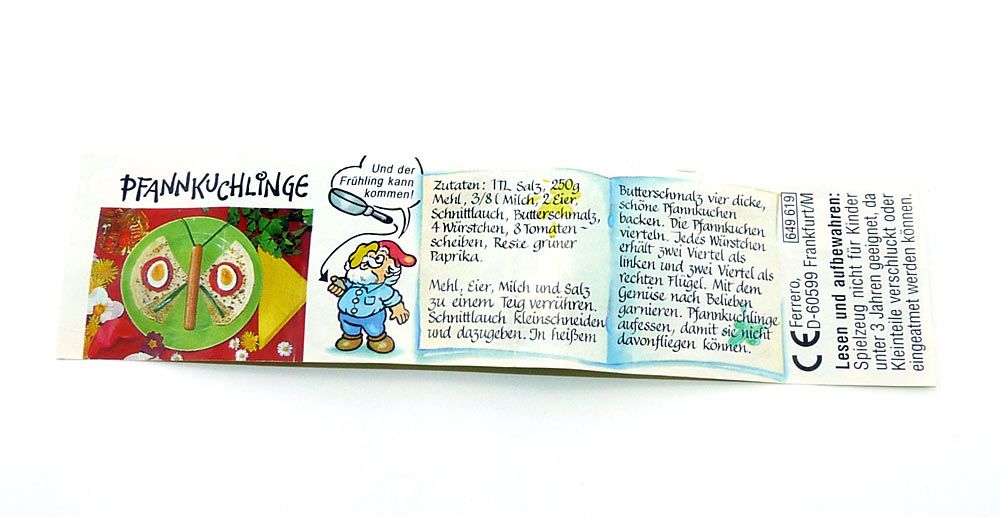 PFANNKUCHLINGE
Und der
Frühling kann
kommen!
Zutaten: 1TL Salz, 250g
Mehl, 3/8 l Milch, 2 Eier,
Schnittlauch, Butterschmalz,
4 Würstchen, 8 Tomaten-
scheiben, Reste grüner
Paprika.
Mehl, Eier, Milch und Salz
zu einem Teig verrühren.
Schnittlauch kleinschneiden
und dazugeben. In heißem
Butterschmalz vier dicke,
schöne Pfannkuchen
backen. Die Pfannkuchen
vierteln. Jedes Würstchen
erhält zwei Viertel als
linken und zwei Viertel als
rechten Flügel. Mit dem
Gemüse nach Belieben
garnieren. Pfannkuchlinge
aufessen, damit sie nicht
davonfliegen können.
649 619
CE Ferrero,
D-60599 Frankfurt/M
Lesen und aufbewahren:
Spielzeug nicht für Kinder
unter 3 Jahren geeignet, da
Kleinteile verschluckt oder
eingeatmet werden können.